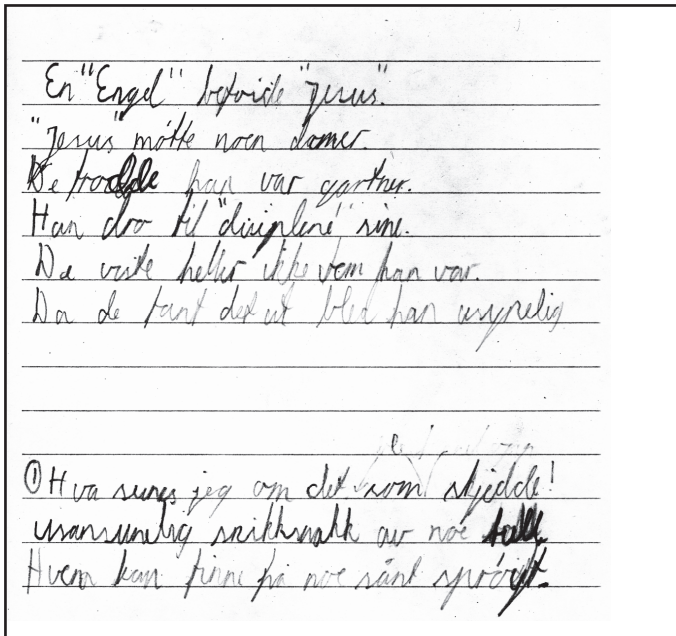 En "Engel" befridde "Jesus".
"Jesus" møtte noen damer.
De trodde han var gartner.
Han dro til "disiplene" sine.
De viste heller ikke vem han var.
Da de fant det ut blei han usynelig
① Hva synes jeg om det som skjedde!
usansynelig snikksnakk av noe
Hvem kan finne på noe sånt sprøytt.